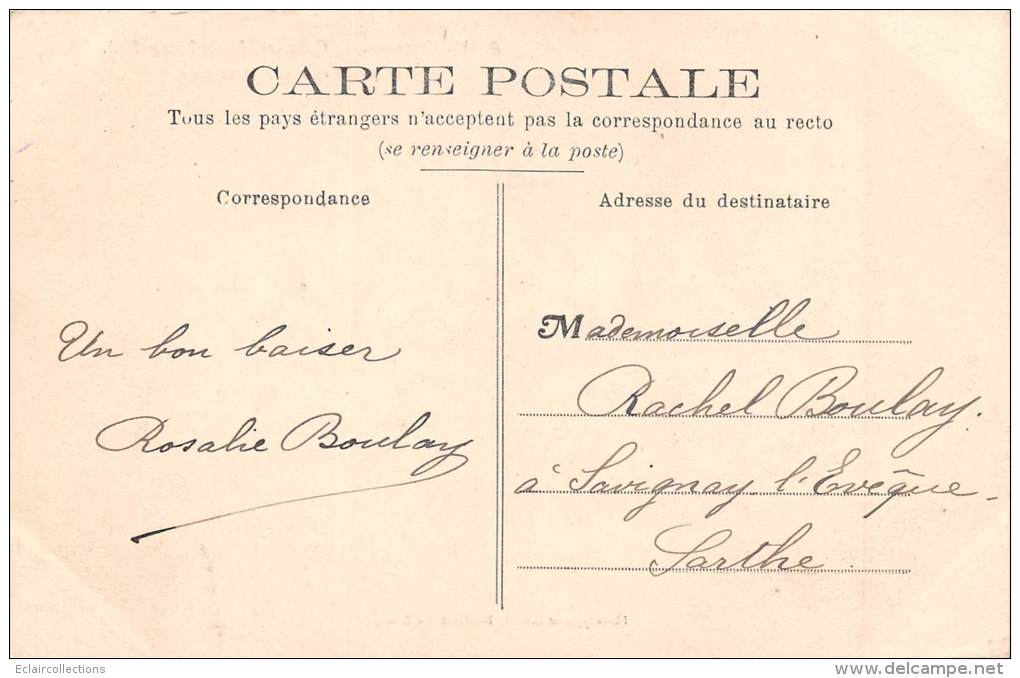 CARTE POSTALE
Tous les pays étrangers n'acceptent pas la correspondance au recto
(se renseigner à la poste)
Correspondance
Un bon baiser
Rosalie Boulay
Adresse du destinataire
Mademoiselle
Rachel Boulay.
à Savignay l'Evêque-
Sarthe
Eclaircollections
delcampe.net